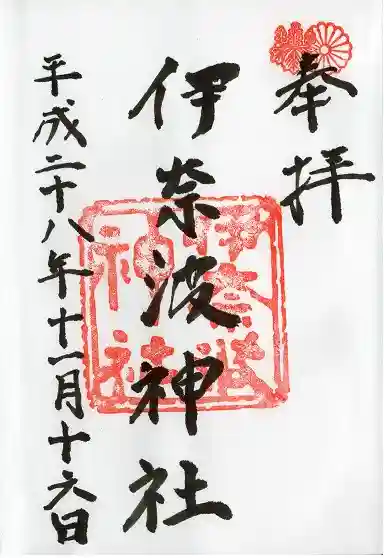 奉拝
伊奈波神社
伊奈波神社
平成二十八年十一月十六日